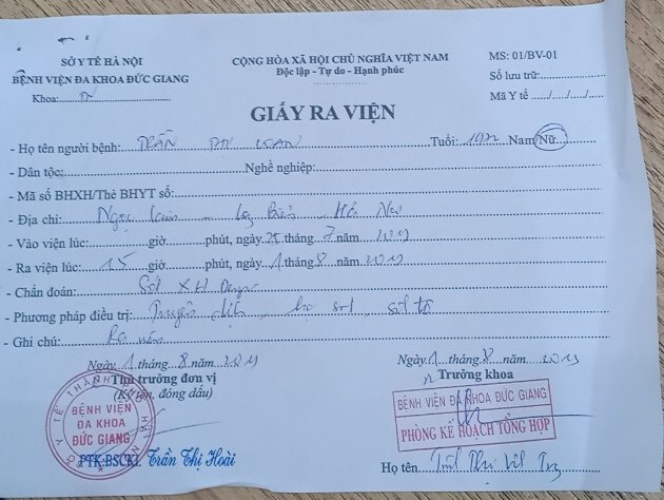 SỞ Y TẾ HÀ NỘI
BỆNH VIỆN ĐA KHOA ĐỨC GIANG
Khoa:
CỘNG HÒA XÃ HỘI CHỦ NGHĨA VIỆT NAM
Độc lập - Tự do - Hạnh phúc
MS: 01/BV-01
Số lưu trữ:
Mã Y tế ..../..../....
GIẤY RA VIỆN
- Họ tên người bệnh: TRẦN Tuổi: 1972 Nam/Nữ
- Dân tộc: Nghề nghiệp:
- Mã số BHXH/Thẻ BHYT số:
- Địa chỉ: Ngọc Biên Hà Nội
- Vào viện lúc: giờ phút, ngày 25 tháng 7 năm
- Ra viện lúc: 15 giờ phút, ngày 1 tháng 8 năm
- Chẩn đoán: Sốt XH Dengue
- Phương pháp điều trị: Truyền dịch, hạ sốt
- Ghi chú: Ra viện
Ngày 1 tháng 8 năm
Thủ trưởng đơn vị
(Ký tên, đóng dấu)
BỆNH VIỆN
ĐA KHOA
ĐỨC GIANG
PTK-BSCKI. Trần Thị Hoài
Ngày 1 tháng 8 năm
Trưởng khoa
BỆNH VIỆN ĐA KHOA ĐỨC GIANG
PHÒNG KẾ HOẠCH TỔNG HỢP
Họ tên